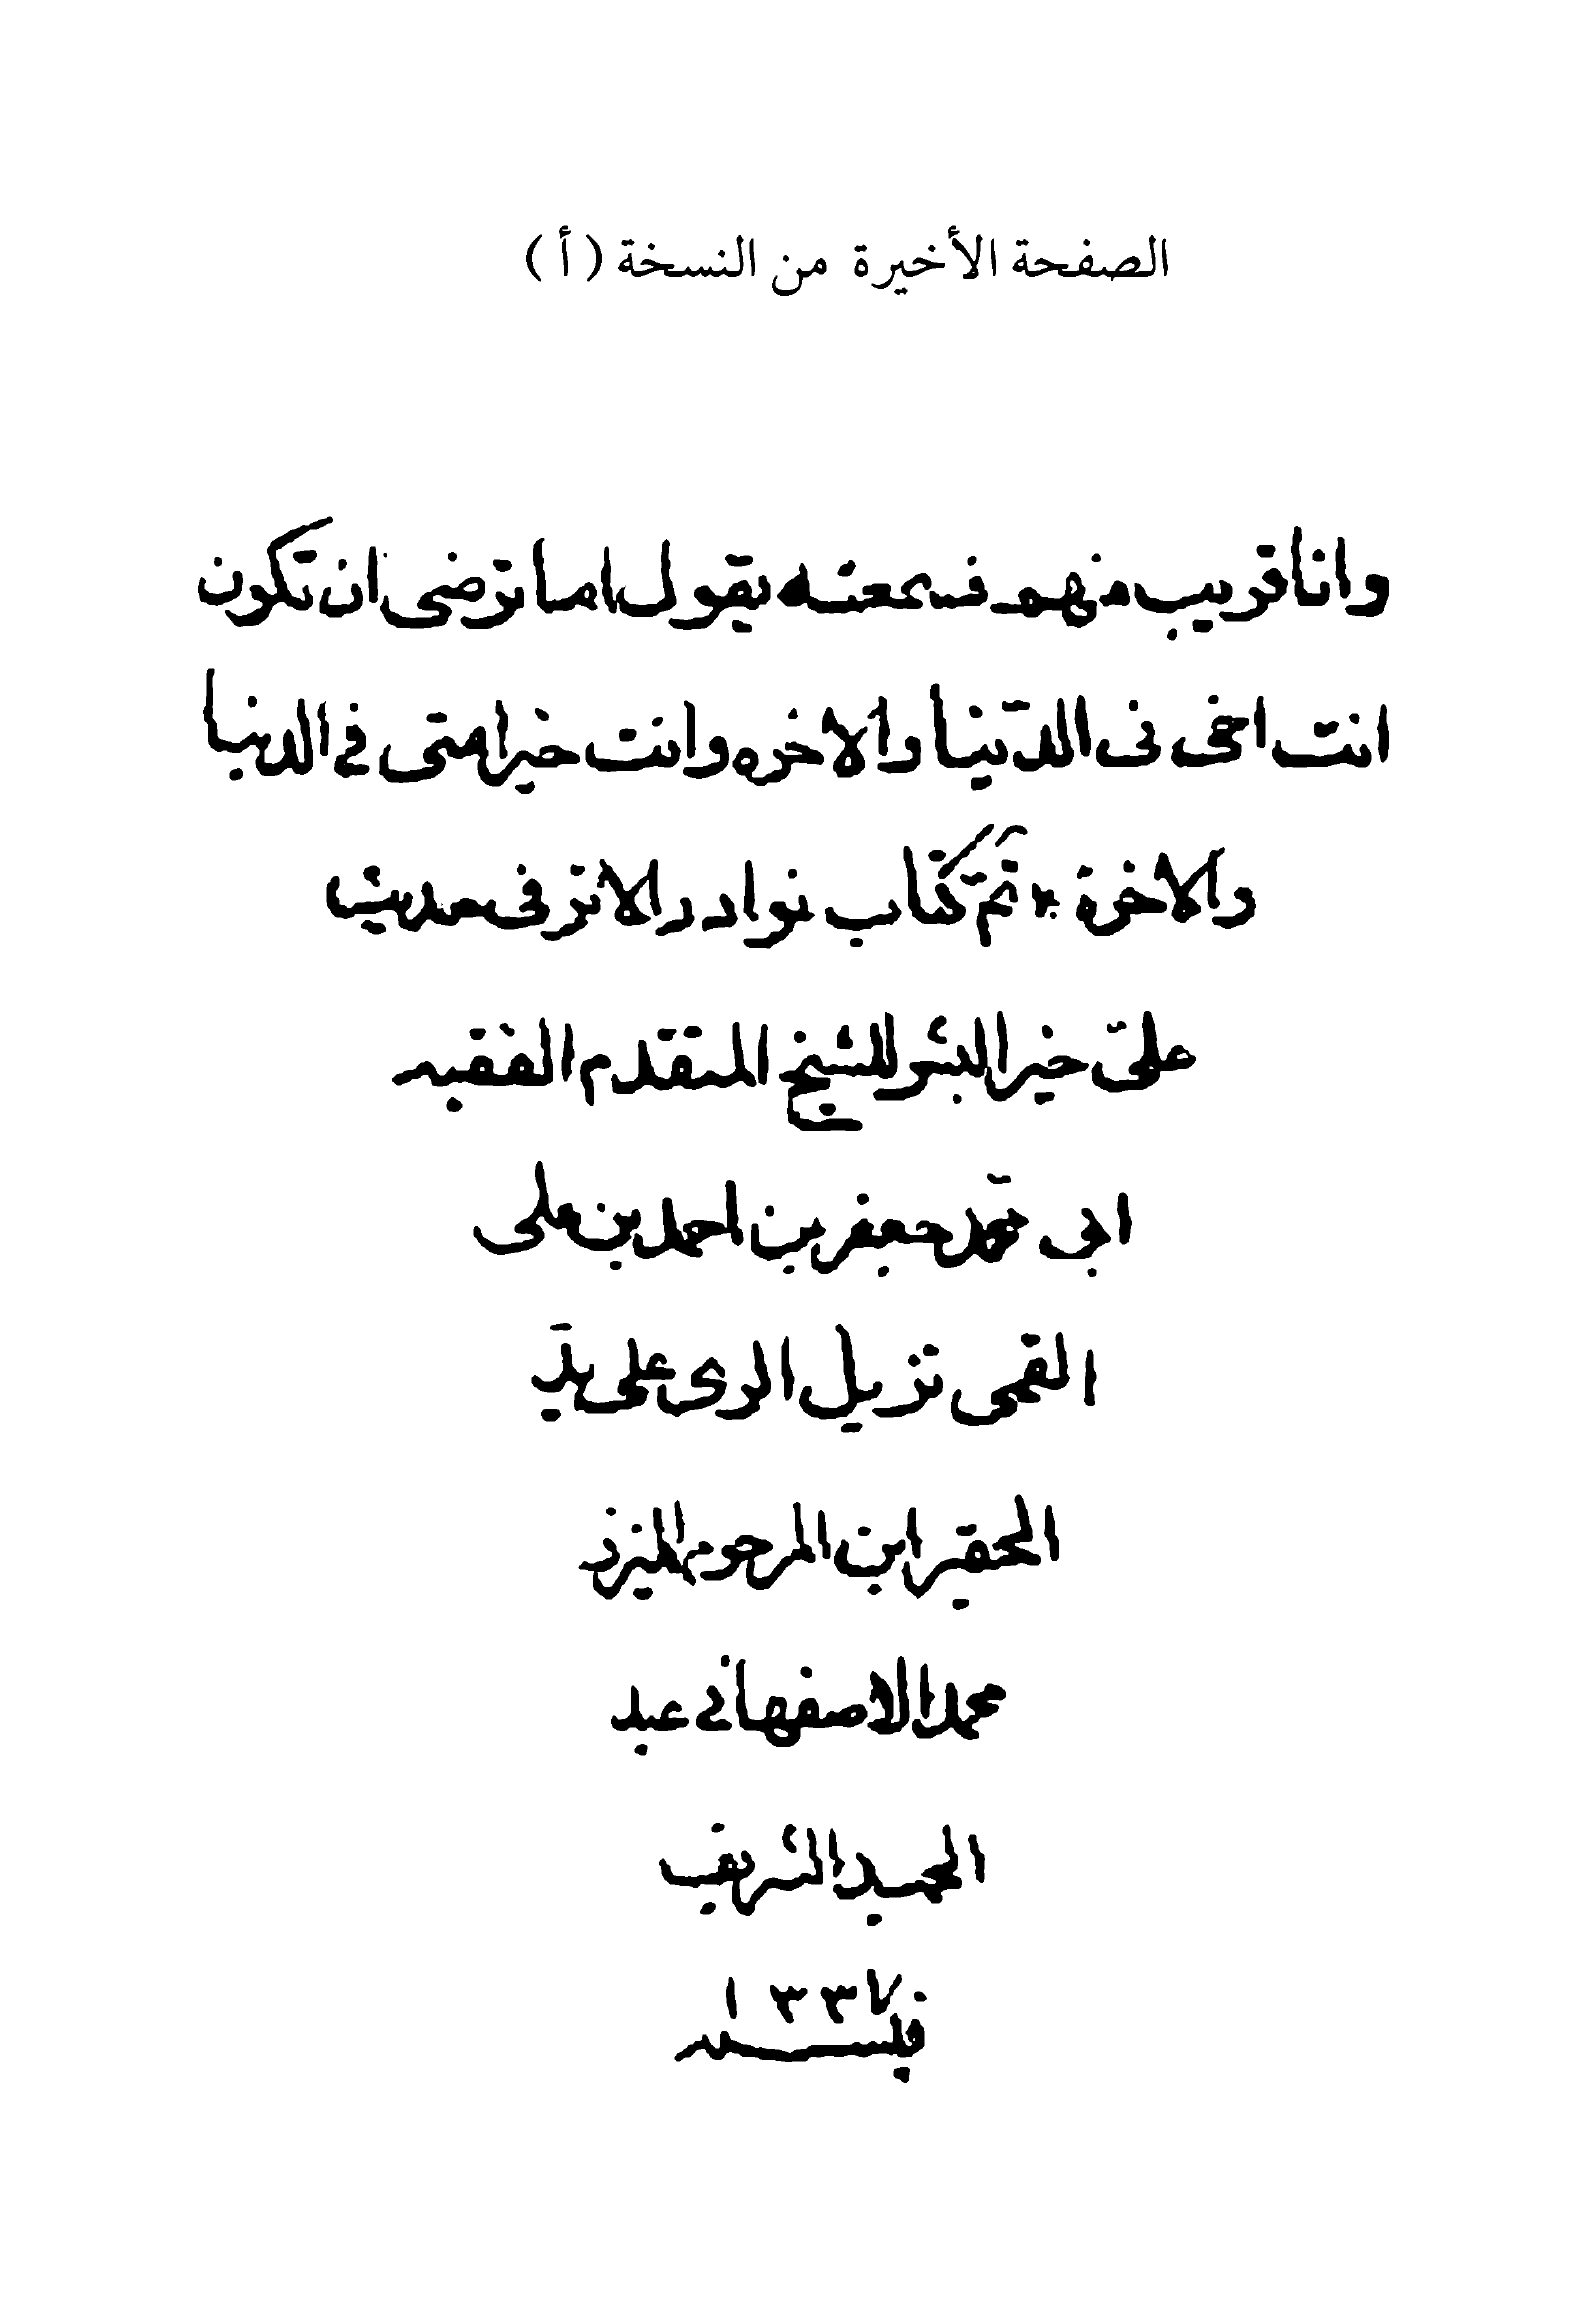 الصفحة الأخيرة من النسخة (أ)
وانا قريب منهم فسمعته يقول اما ترضى ان تكون
انت اخى فى الدّنيا والاخره وانت خير امتى في الدنيا
والاخرة تمّ كتاب نوادر الاثر فى حديث
علىّ خير البشر للشيخ المتقدم الفقيه
ابى محمّد جعفر بن احمد بن على
القمى نزيل الرى على يد
الحقير ابن المرحوم
محمد الاصفهاني عبد
الحميد الشريف
١٣٣٧